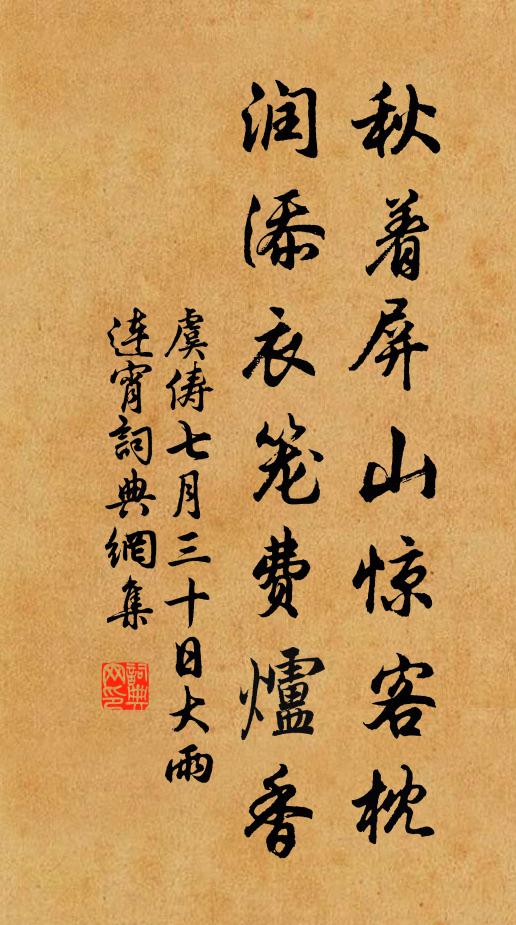 秋着屏山惊客枕
润添衣笼费爐香
虞俦七月三十日大雨
连宵詞典網集
詞典
网印